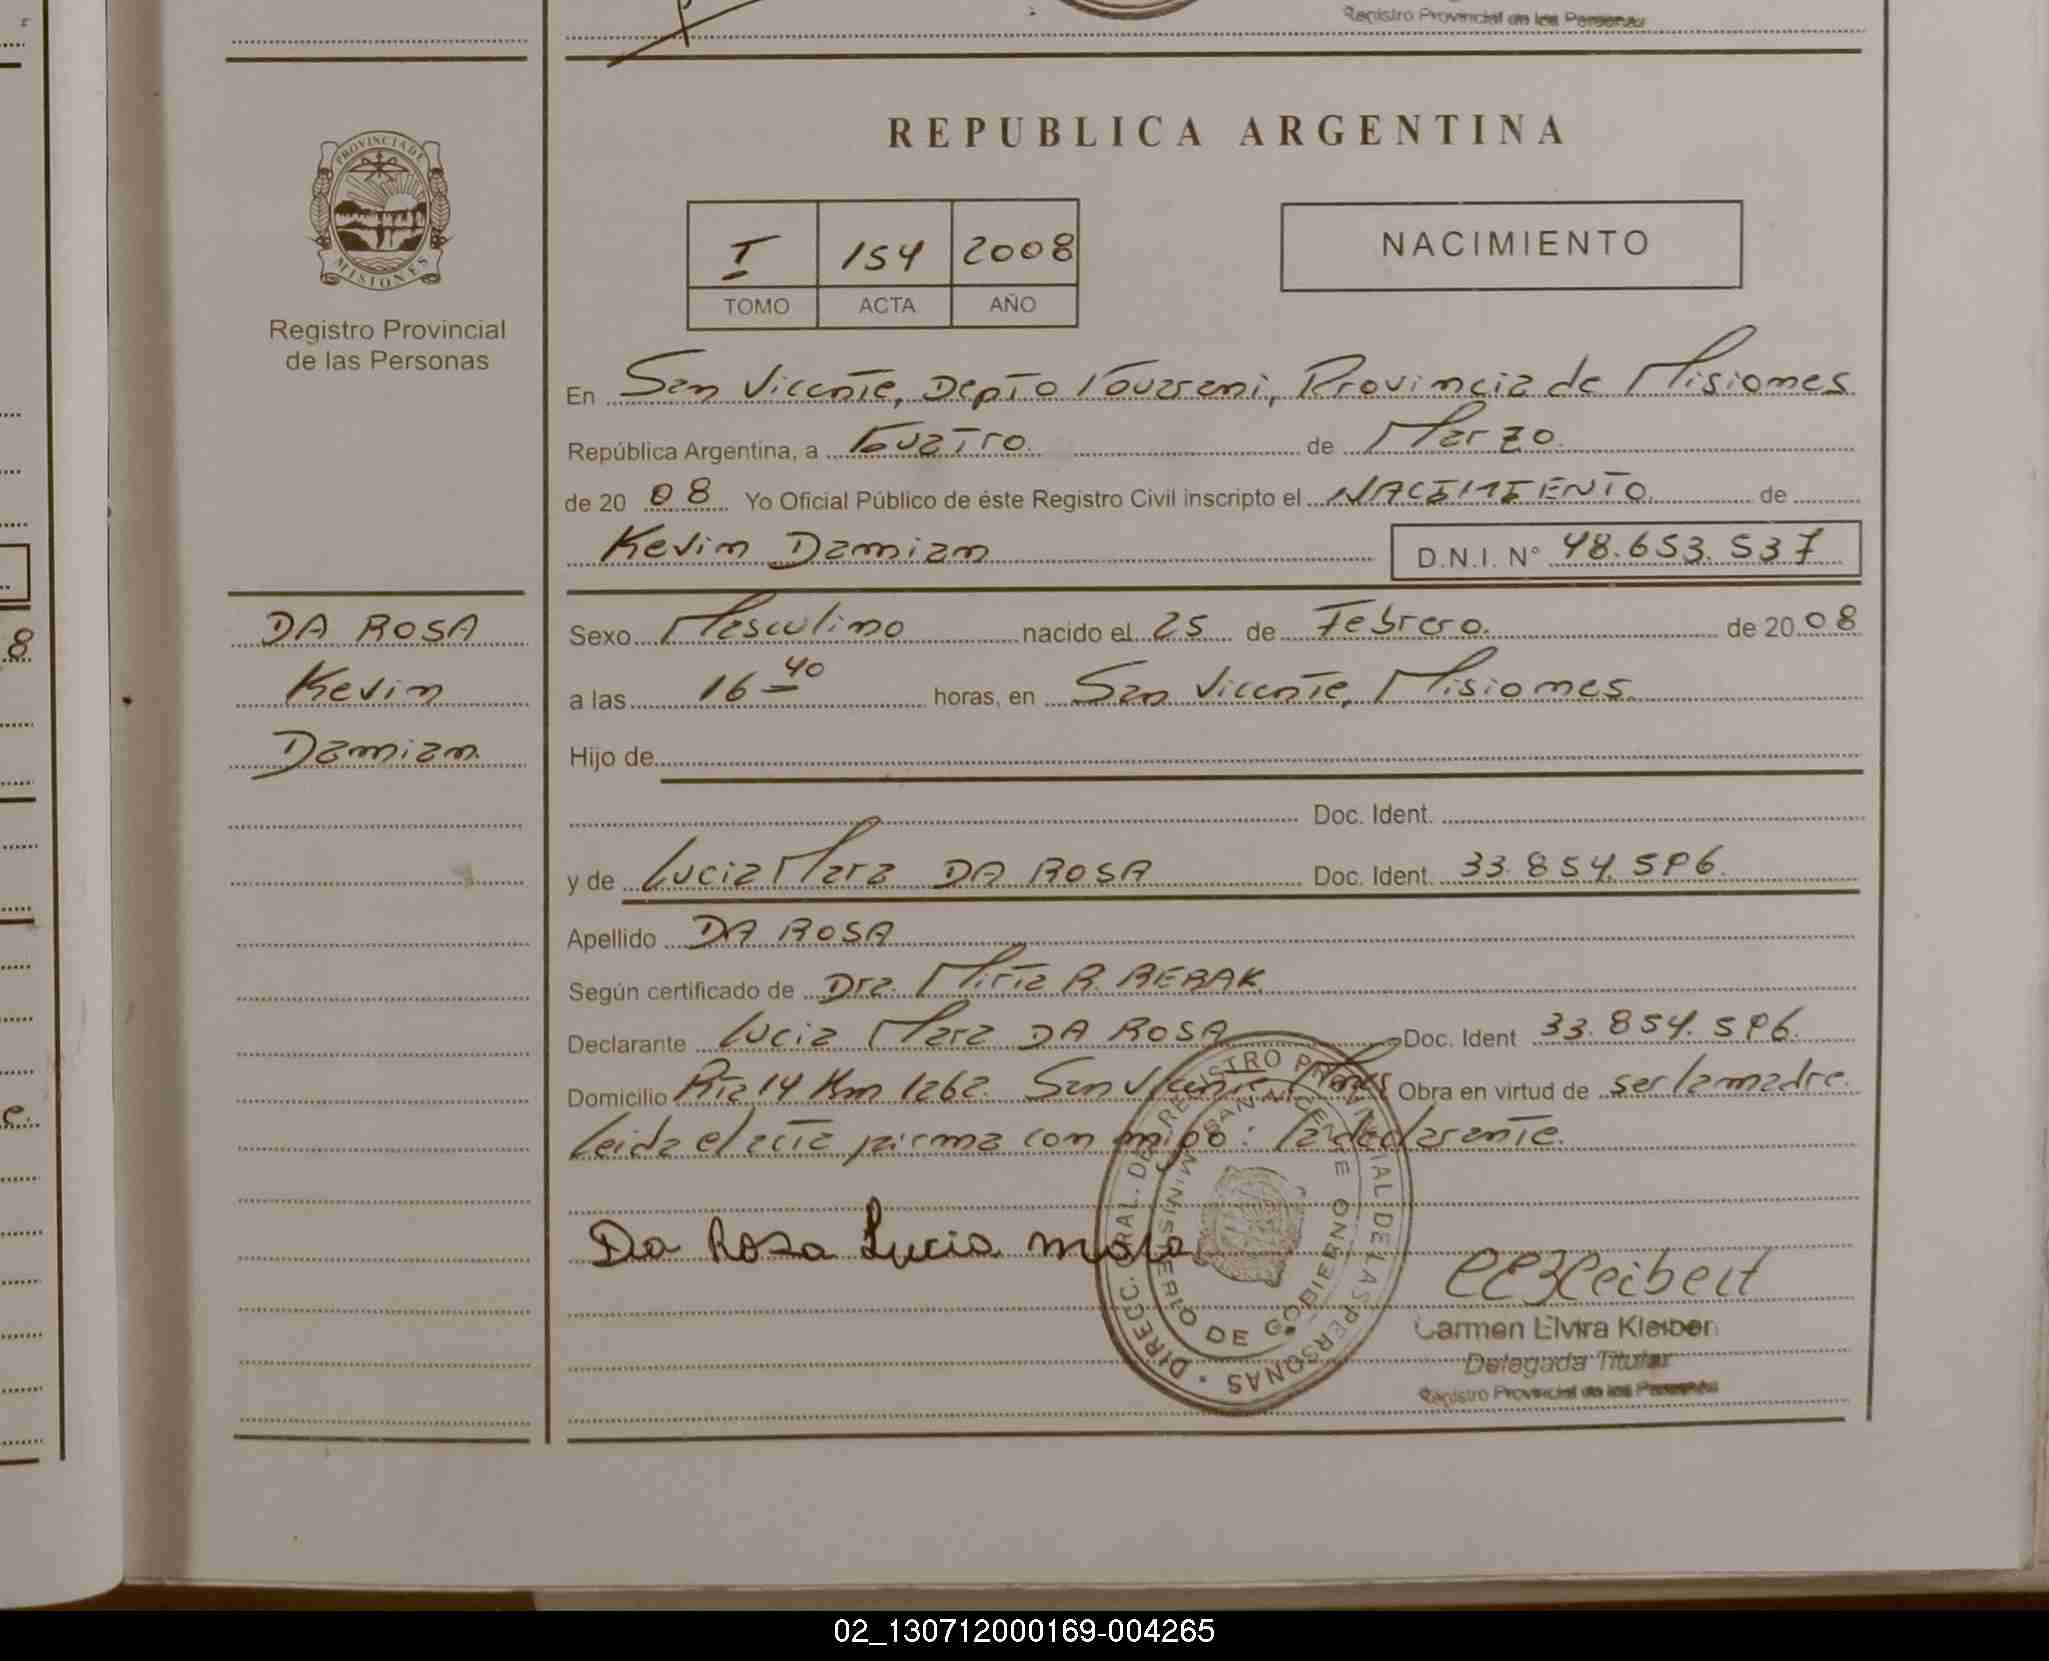 Registro Provincial de las Personas
REPUBLICA ARGENTINA
PROVINCIA DE MISIONES
Registro Provincial
de las Personas
I 154 2008
TOMO ACTA AÑO
NACIMIENTO
En San Vicente, Depto Guarani, Provincia de Misiones
República Argentina, a Cuatro de Marzo
de 20 08 Yo Oficial Público de éste Registro Civil inscripto el NACIMIENTO de
Kevin Damian D.N.I. N° 48.653.537
DA ROSA
Kevin
Damian
Sexo Masculino nacido el 25 de Febrero de 20 08
a las 16-40 horas, en San Vicente, Misiones
Hijo de
Doc. Ident.
y de Lucia Mara DA ROSA Doc. Ident. 33.854.596.
Apellido DA ROSA
Según certificado de Dra. Mirta R. REBAK
Declarante Lucia Mara DA ROSA Doc. Ident 33.854.596.
Domicilio Rta 14 Km 1262. San Vicente Mnes Obra en virtud de ser la madre.
Leida el acta firma con migo: la declarante.
Da Rosa Lucia mara
DIRECC. GRAL. DEL REGISTRO PROVINCIAL DE LAS PERSONAS
MINISTERIO DE GOBIERNO
SAN VICENTE
CEKleibert
Carmen Elvira Kleiber
Delegada Titular
Registro Provincial de las Personas
8
e.
02_130712000169-004265